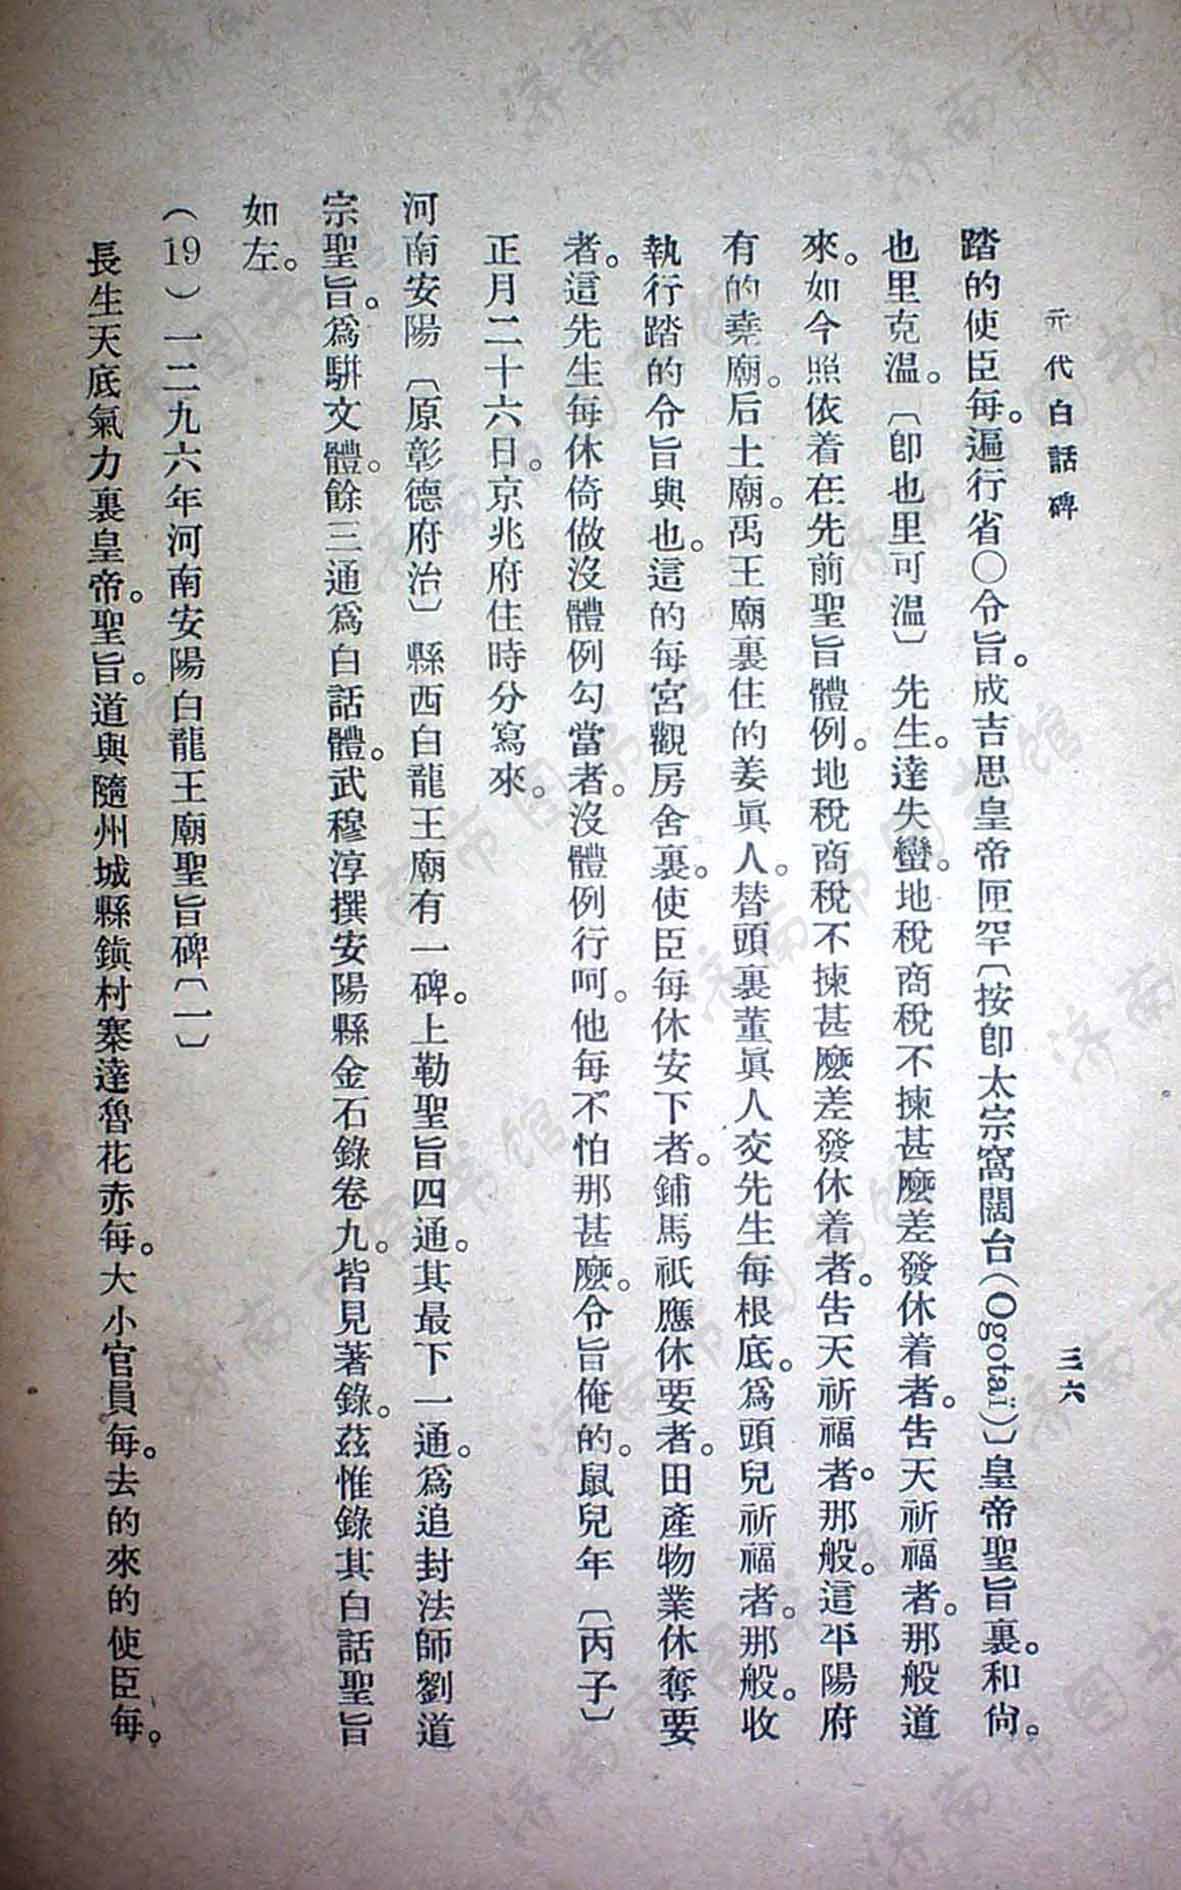 元代白話碑
三六
踏的使臣每。遍行省○令旨。成吉思皇帝匣罕〔按卽太宗窩闊台(Ogotaï)〕皇帝聖旨裏。和尙。
也里克溫。〔卽也里可溫〕先生。達失蠻。地稅商稅不揀甚麼差發休着者。告天祈福者。那般道
來。如今照依着在先前聖旨體例。地稅商稅不揀甚麼差發休着者。告天祈福者。那般。這平陽府
有的堯廟。后土廟。禹王廟裏住的姜眞人。替頭裏董眞人交先生每根底。爲頭兒祈福者。那般。收
執行踏的令旨與也。這的每宮觀房舍裏。使臣每休安下者。鋪馬祇應休要者。田產物業休奪要
者。這先生每休倚做沒體例勾當者。沒體例行呵。他每不怕那甚麼。令旨俺的。鼠兒年〔丙子〕
正月二十六日。京兆府住時分寫來。
河南安陽〔原彰德府治〕縣西白龍王廟有一碑。上勒聖旨四通。其最下一通。爲追封法師劉道
宗聖旨。爲駢文體。餘三通爲白話體。武穆淳撰安陽縣金石錄卷九。皆見著錄。茲惟錄其白話聖旨
如左。
(19)一二九六年河南安陽白龍王廟聖旨碑〔一〕
長生天底氣力裏皇帝。聖旨。道與隨州城縣鎭村寨達魯花赤每。大小官員每。去的來的使臣每。